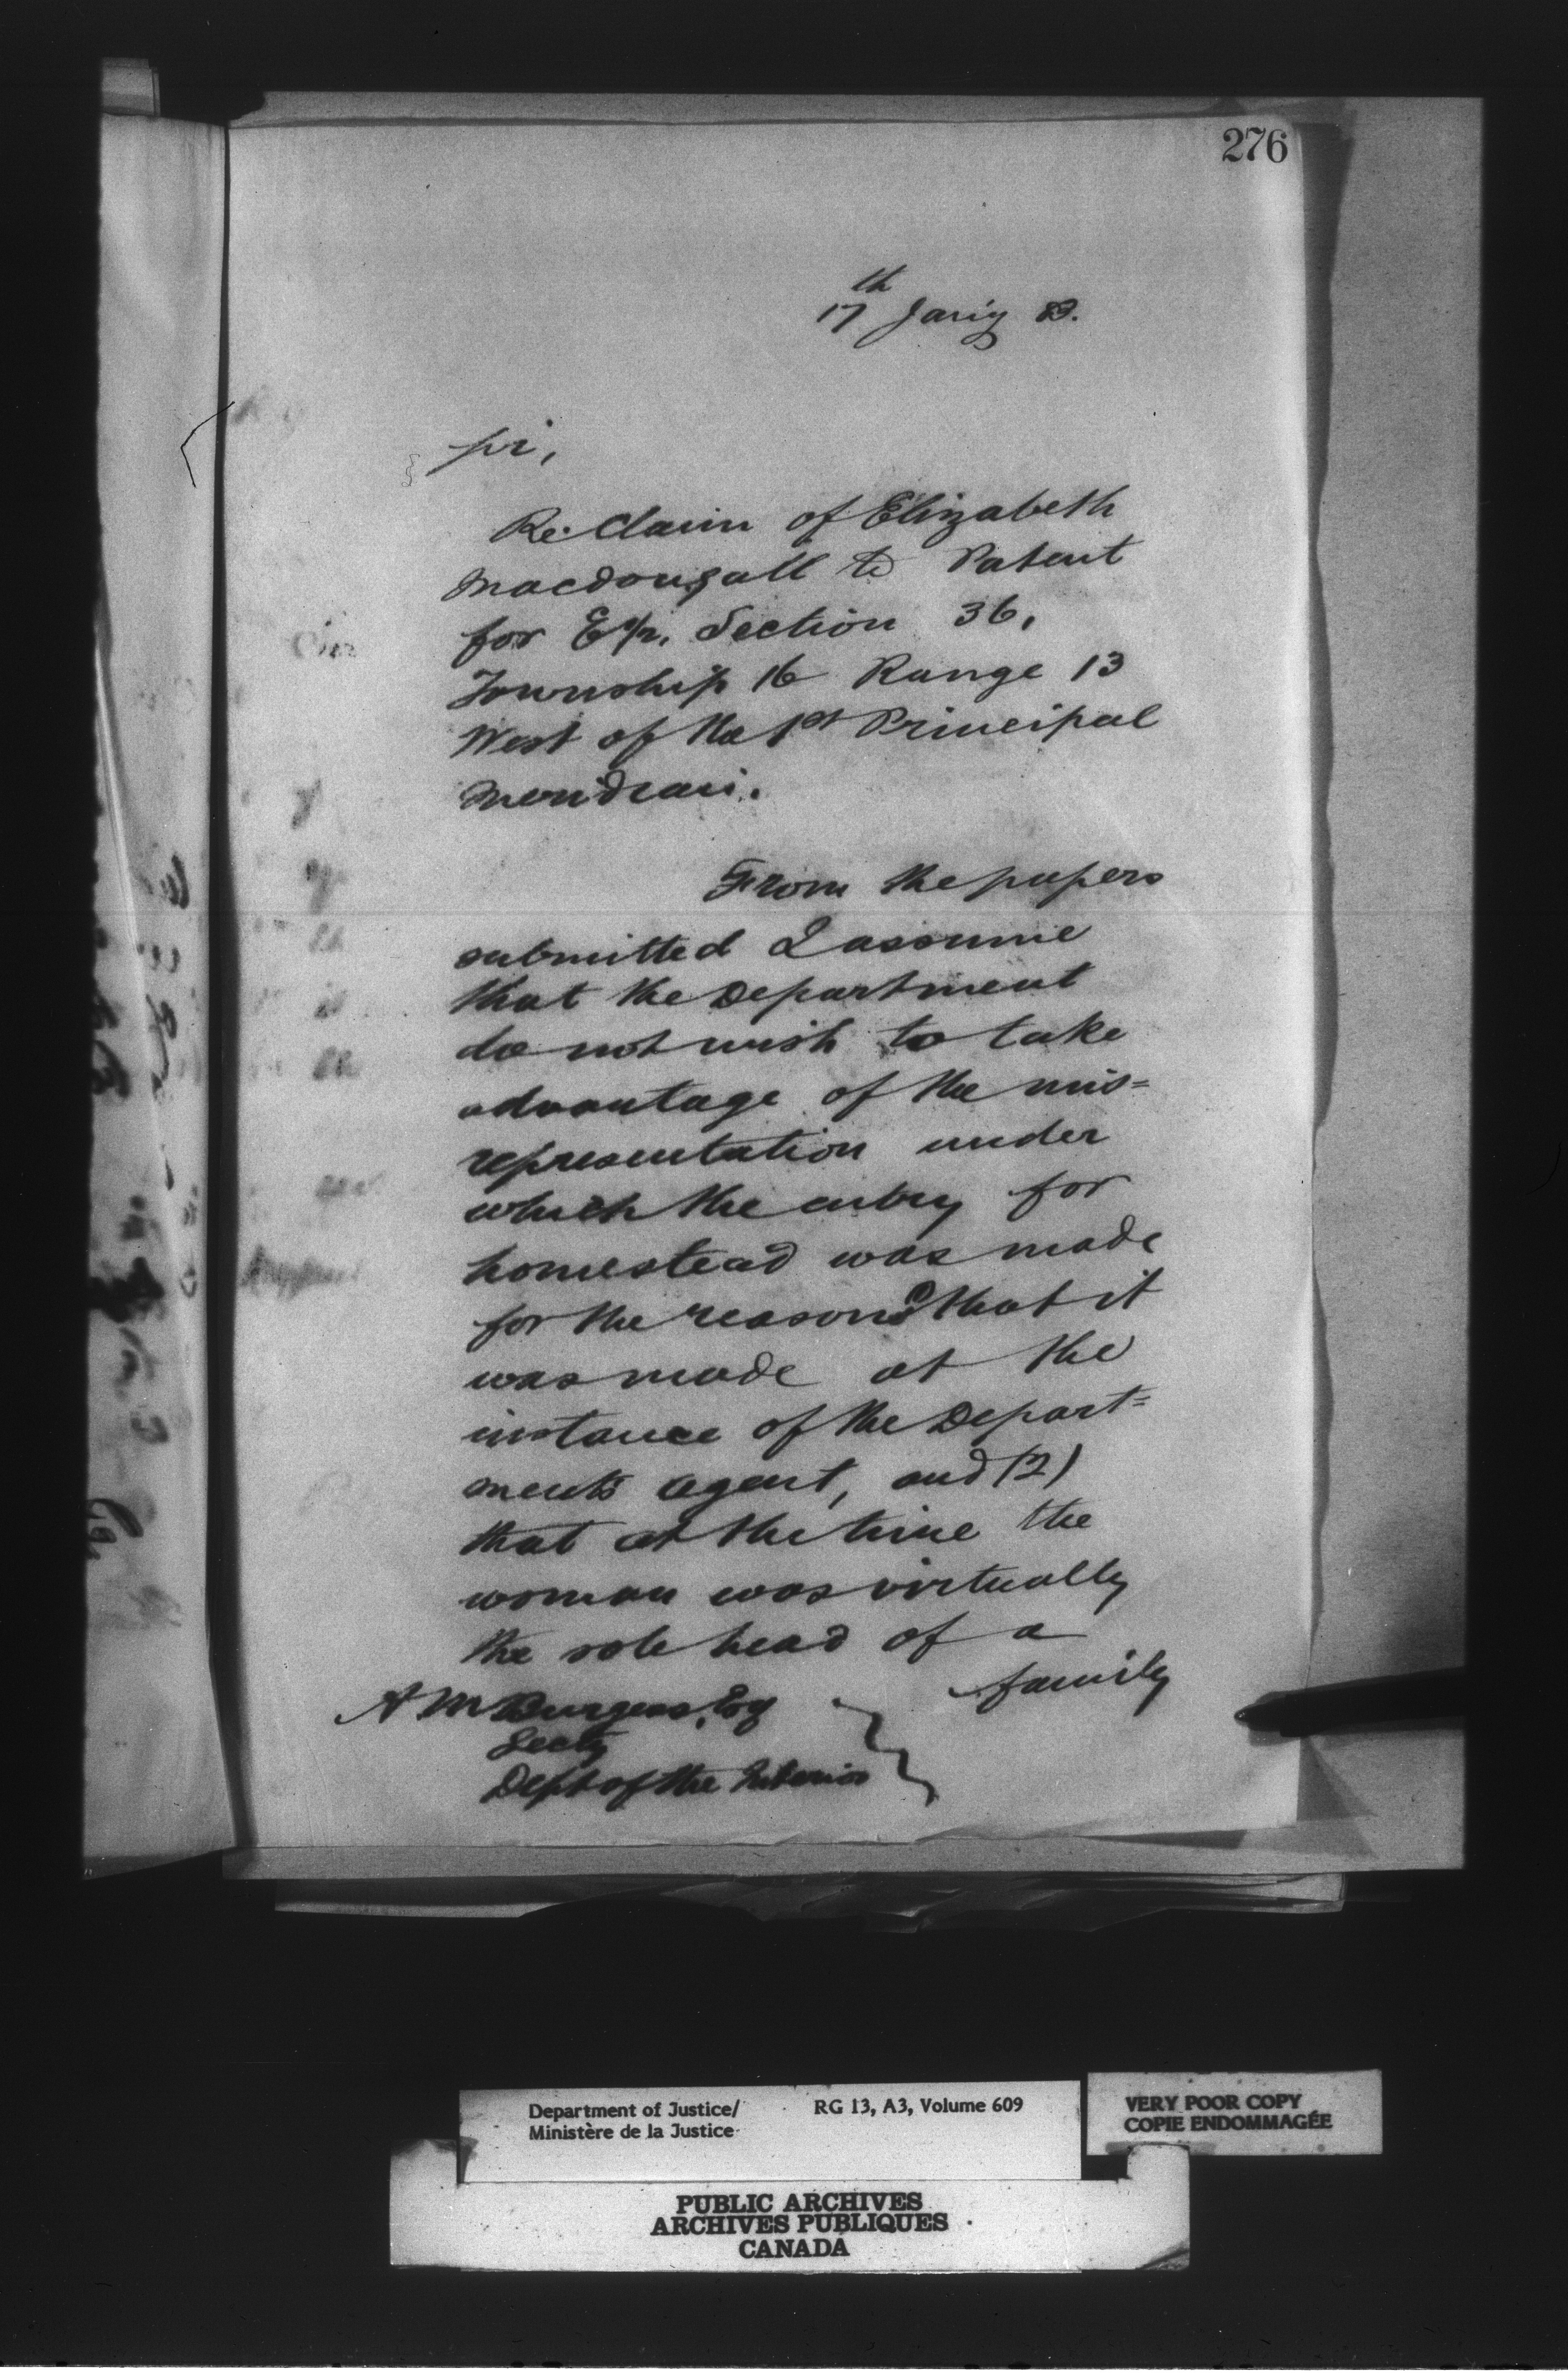 276
17th Jany 83.
Sir,
Re. Claim of Elizabeth
Macdougall to Patent
for E½, Section 36,
Township 16 Range 13
West of the 1st Principal
Meridian.
From the papers
submitted I assume
that the Department
do not wish to take
advantage of the mis=
representation under
which the entry for
homestead was made
for the reasons that it
was made at the
instance of the Depart=
ments agent, and (2)
that at the time the
woman was virtually
the sole head of a
family
A M Burgess, Esq
Secty
Dept of the Interior
Department of Justice/
Ministère de la Justice
RG 13, A3, Volume 609
VERY POOR COPY
COPIE ENDOMMAGÉE
PUBLIC ARCHIVES
ARCHIVES PUBLIQUES
CANADA